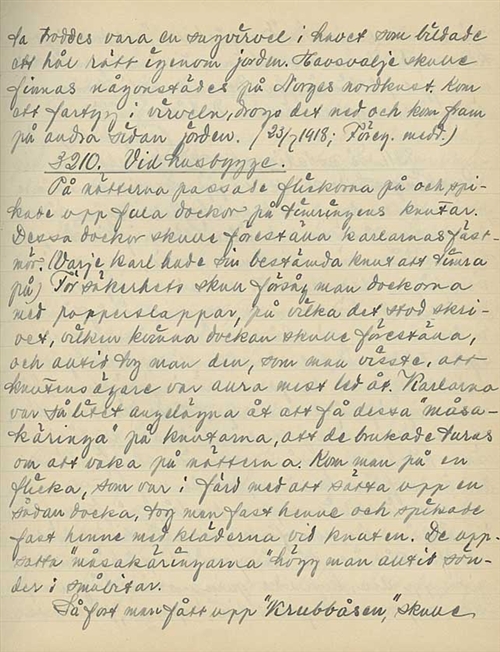 de troddes vara en sugvirvel i havet som bildade
ett hål rätt igenom jorden. Havsvalje skulle
finnas någonstädes på Norges nordkust. Kom
ett fartyg i virveln, drogs det ned och kom fram
på andra sidan jorden. (23/7 1918; Föreg. medd.)
§210. Vid husbygge.
På nätterna passade flickorna på och spi-
kade upp fula dockor på timringens knutar.
Dessa dockor skulle föreställa karlarnas fäst-
mör. (Varje karl hade sin bestämda knut att timra
på) För säkerhets skull försåg man dockorna
med papperslappar, på vilka det stod skri-
vet, vilken kvinna dockan skulle föreställa,
och alltid tog man den, som man visste, att
knutens ägare var allra mest led åt. Karlarna
var så litet angelägna åt att få dessa "måsa-
käringa" på knutarna, att de brukade turas
om att vaka på nätterna. Kom man på en
flicka, som var i färd med att sätta upp en
sådan docka, tog man fast henne och spikade
fast henne med kläderna vid knuten. De upp-
satta "måsakäringarna" högg man alltid sön-
der i småbitar.
Så fort man fått upp "Krubbåsen," skulle